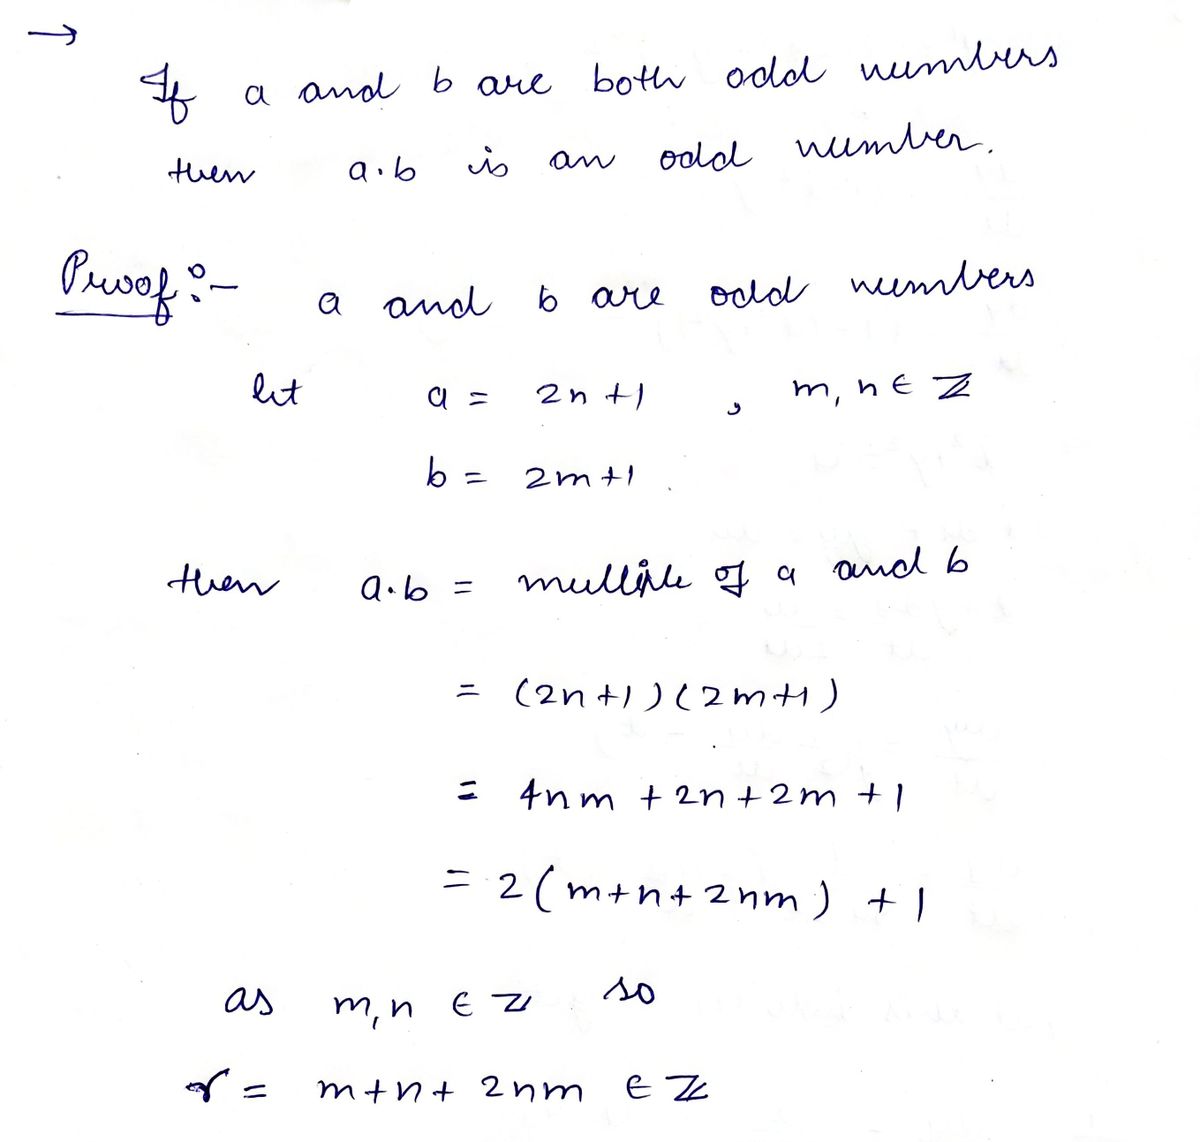 →
If a and b are both odd numbers
then a.b is an odd number.
Proof :- a and b are odd numbers
let a = 2n+1 , m, n ∈ ℤ
b = 2m+1
then a.b = multiple of a and b
= (2n+1)(2m+1)
= 4nm + 2n + 2m + 1
= 2(m+n+2nm) + 1
as m,n ∈ ℤ so
r = m+n+ 2nm ∈ ℤ